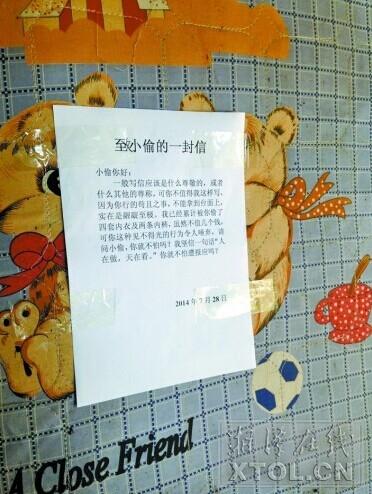 致小偷的一封信
小偷你好：
一般写信应该是什么尊敬的，或者
什么其他的尊称，可你不值得我这样写，
因为你行的苟且之事，不能拿到台面上，
实在是龌龊至极，我已经累计被你偷了
四套内衣及两条内裤，虽然不值几个钱，
可你这种见不得光的行为令人唾弃，请
问小偷，你就不怕吗？我坚信一句话“人
在做，天在看。”你就不怕遭报应吗？
2014年7月28日
A Close Friend
湘潭在线
XTOL.CN